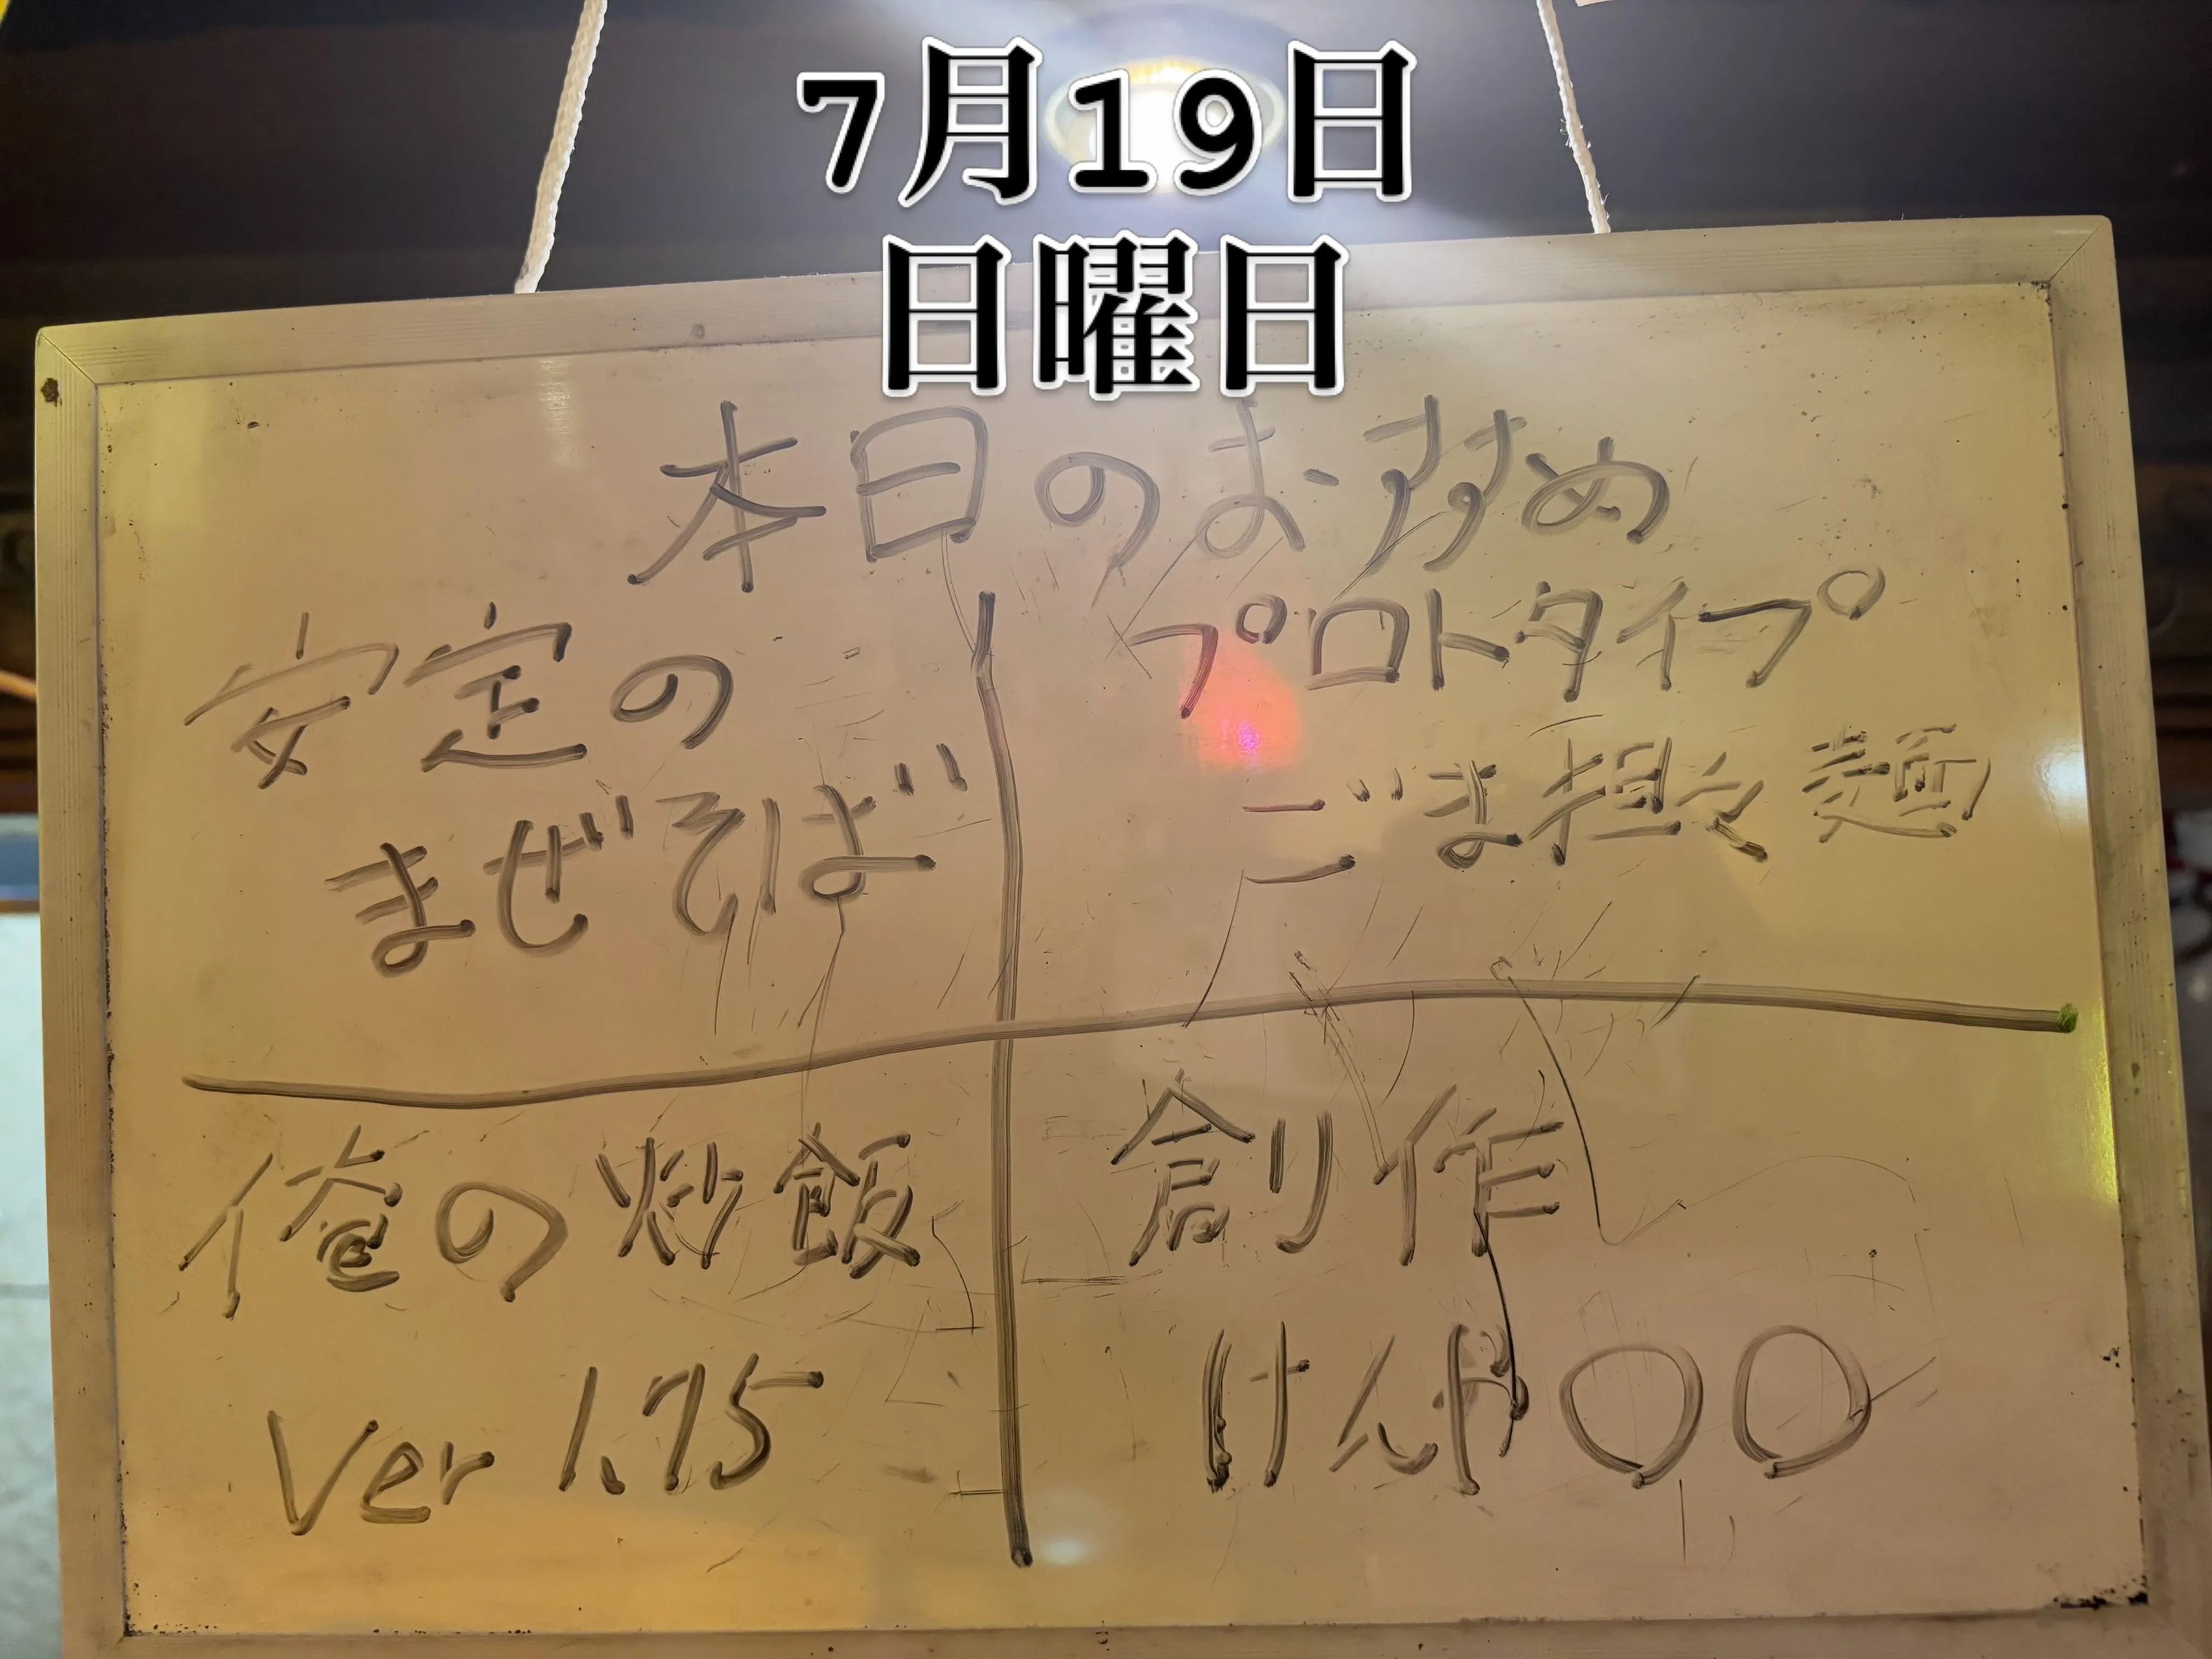 7月19日
日曜日
本日のおすすめ
安定の
まぜそば
プロトタイプ
ごま担々麺
俺の炒飯
Ver 1.75
創作
けんや〇〇